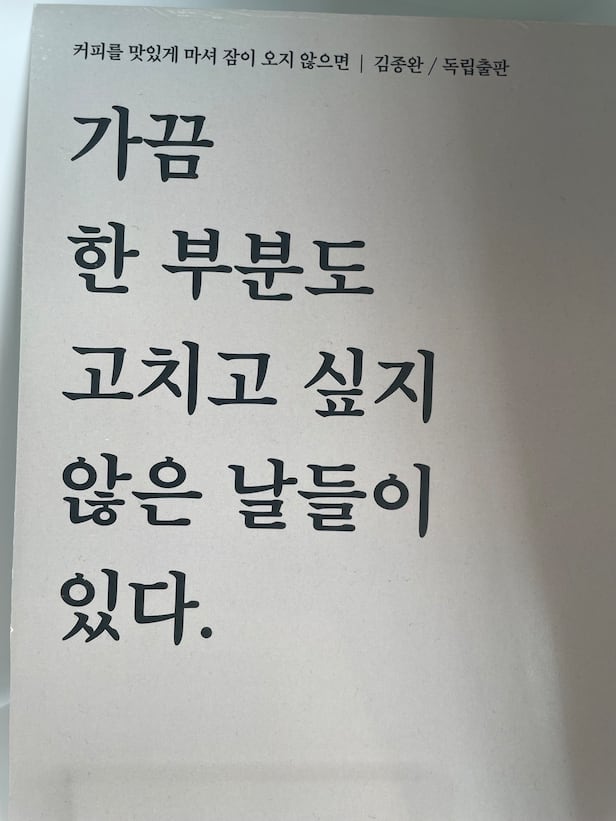 커피를 맛있게 마셔 잠이 오지 않으면 | 김종완 / 독립출판
가끔
한 부분도
고치고 싶지
않은 날들이
있다.